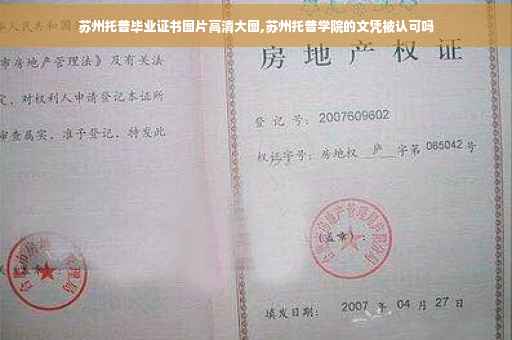 苏州托普毕业证书图片高清大图,苏州托普学院的文凭被认可吗
人民共和国
市房地产管理法》及有关法
定，对权利人申请登记本证所
审查属实，准予登记，特发此
房地产权证
登记号：2007609602
权证字号：房地权 庐 字第 085042 号
(盖章)：
填发日期： 2007 年 04 月 27 日